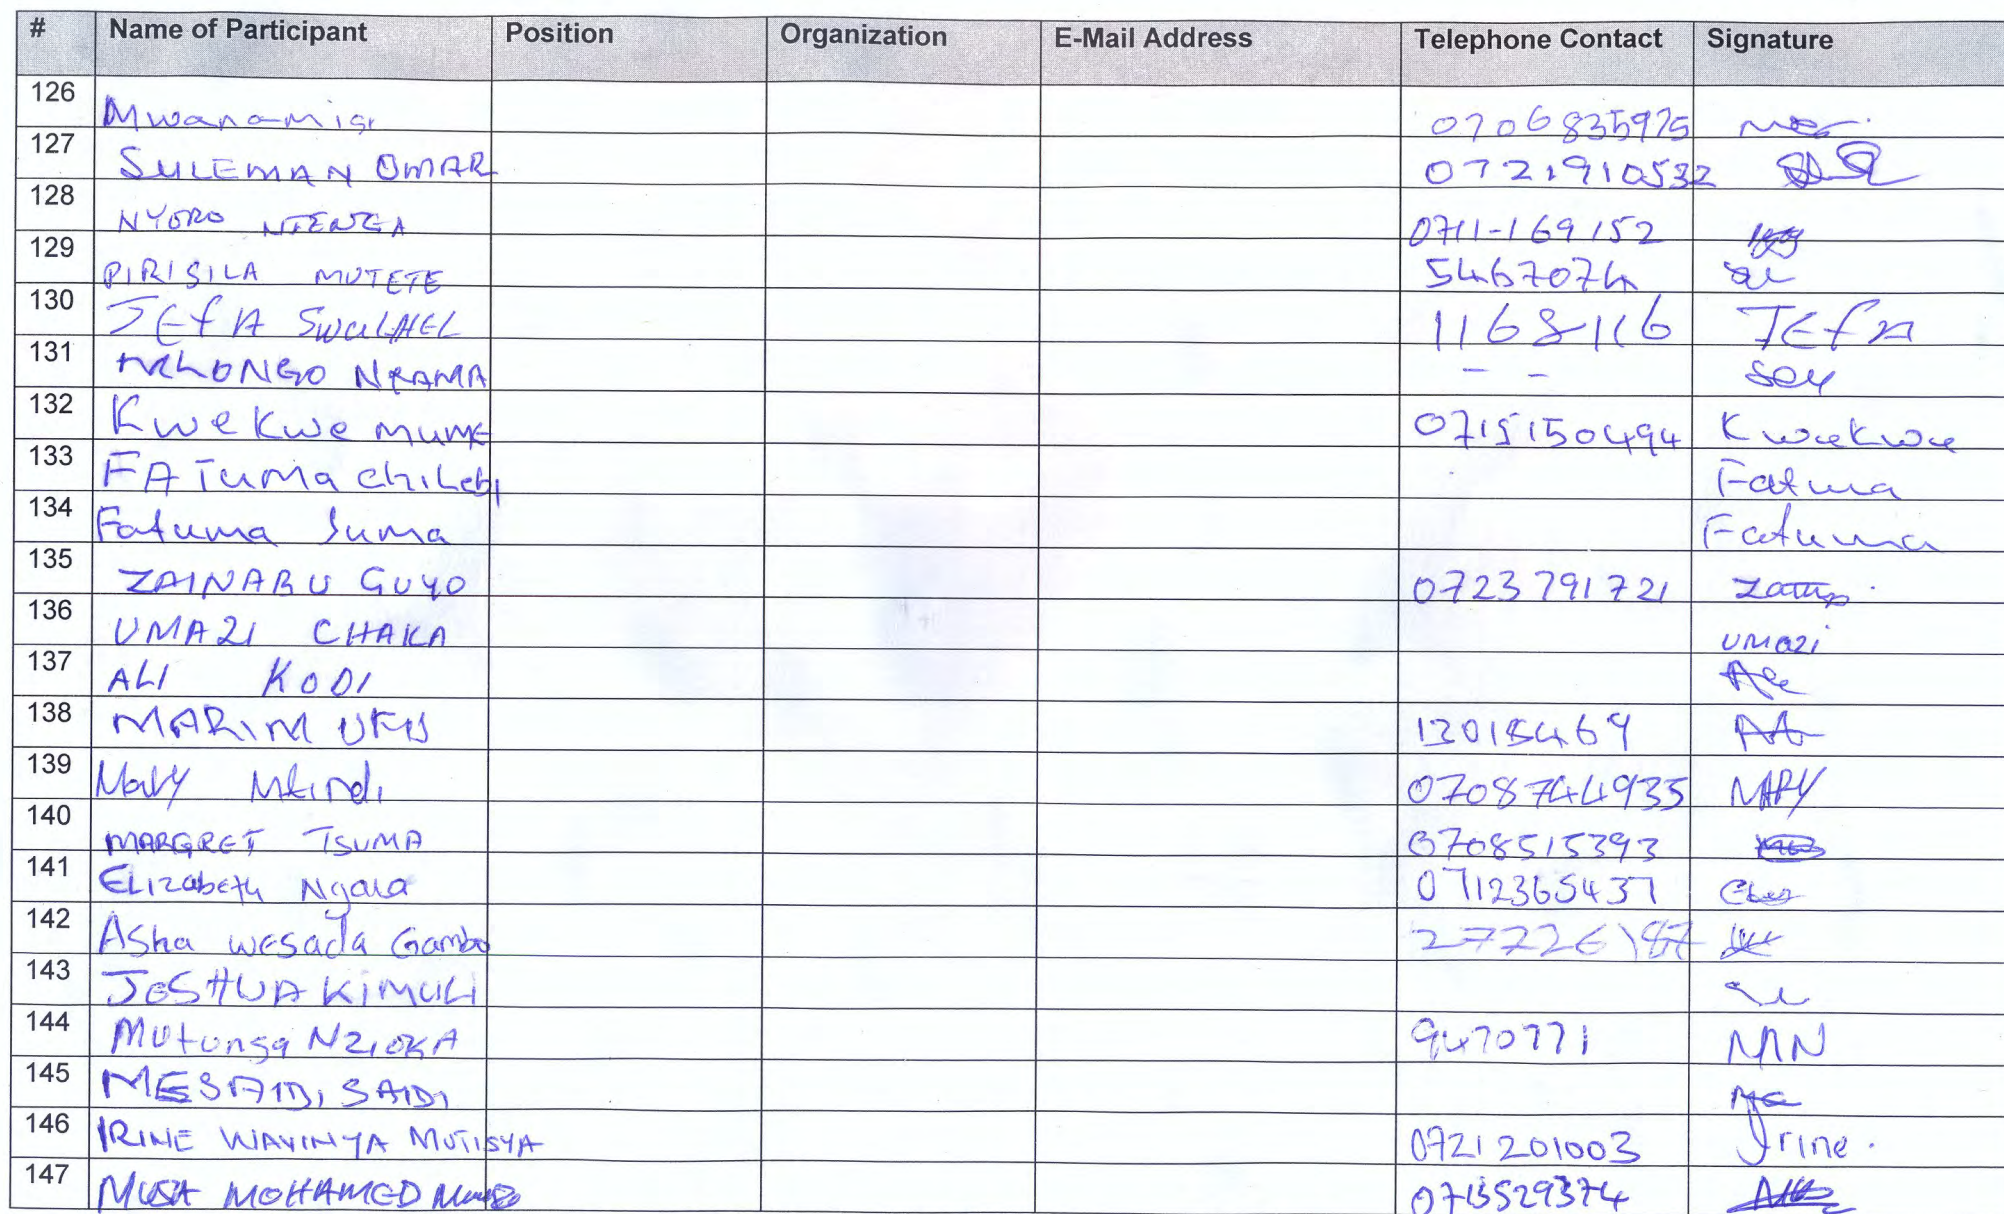 # Name of Participant Position Organization E-Mail Address Telephone Contact Signature
126 Mwanamisi 0706835975
127 SULEMAN OMAR 0721910532
128 NYORO NTENGA 0711-169152
129 PIRISILA MUTETE 5467074
130 JEfA SwalHEL 1168116 JEfA
131 NRAMA - -
132 Kwekwe mume 0715150494 Kwekwe
133 FATuma chiLebi Fatuma
134 Fatuma Juma Fatuma
135 ZAINABU GUYO 0723791721
136 UMAZI CHAKA UMAZI
137 ALI KODI Ali
138 MARIM 13015469
139 Mary 0708744935 MARY
140 MARGRET TSUMA 0708515393
141 ELIzabeth Ngala 0712365437
142 Asha wesada Gambo 27726187
143 JOSHUA KiMULi
144 Mutunga NZIOKA 9470771 MN
145 MESAIDI SAIDI
146 IRINE WAVINYA MUTISYA 0721201003 Irine.
147 MUSA MOHAMED 0713529374